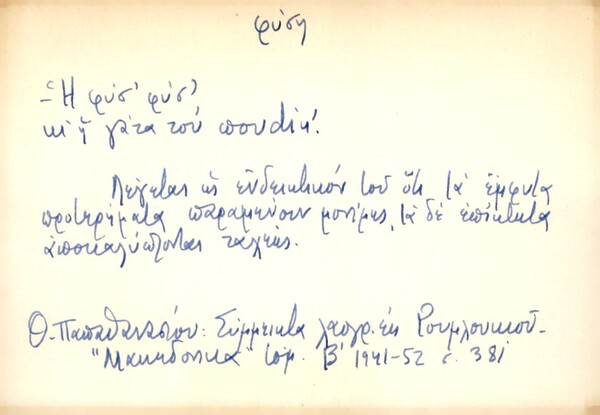 φύση
- Ἡ φύσ' φύσ'
κι ἡ γάτα τοὺ πουdίκ'.
Λέγεται ὡς ἐνδεικτικόν τοῦ ὅτι τά ἔμφυτα
προτερήματα παραμένουν μονίμως, τά δέ ἐπίκτητα
ἀποκαλύπτονται ταχέως.
Θ. Παπαθανασίου: Σύμμεικτα λαογρ. ἐκ Ρουμλουκιοῦ-
"Μακεδονικά" τόμ. Β' 1941-52 σ. 381